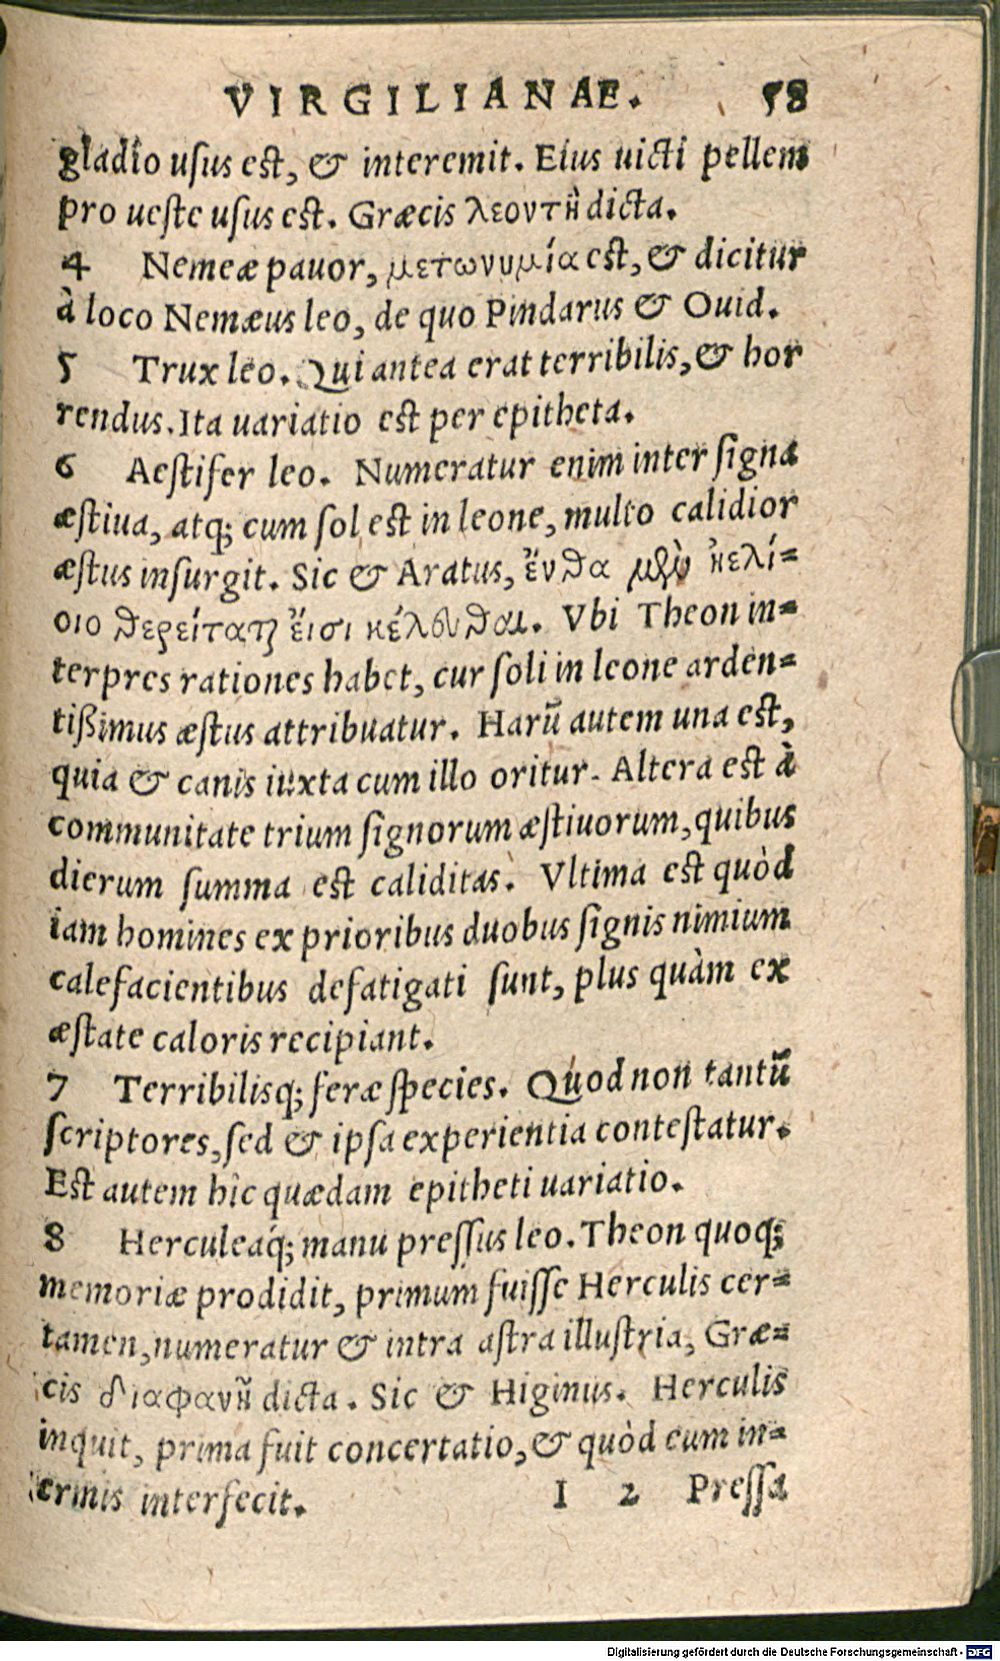 VIRGILIANAE. 58
gladio usus est, & interemit. Eius uicti pellem
pro ueste usus est. Græcis λεοντῆ dicta.
4 Nemeæ pauor, μετωνυμία est, & dicitur
à loco Nemæus leo, de quo Pindarus & Ouid.
5 Trux leo. Qui antea erat terribilis, & hor
rendus. Ita uariatio est per epitheta.
6 Aestifer leo. Numeratur enim inter signa
æstiua, atq; cum sol est in leone, multo calidior
æstus insurgit. Sic & Aratus, ἔνθα μὲν ἠελί-
οιο θερείταται ἔισι κέλευθαι. Vbi Theon in-
terpres rationes habet, cur soli in leone arden-
tißimus æstus attribuatur. Harũ autem una est,
quia & canis iuxta cum illo oritur. Altera est à
communitate trium signorum æstiuorum, quibus
dierum summa est caliditas. Vltima est quòd
iam homines ex prioribus duobus signis nimium
calefacientibus defatigati sunt, plus quàm ex
æstate caloris recipiant.
7 Terribilisq; feræ species. Quod non tantũ
scriptores, sed & ipsa experientia contestatur.
Est autem hîc quædam epitheti uariatio.
8 Herculeaq́; manu pressus leo. Theon quoq;
memoriæ prodidit, primum fuisse Herculis cer-
tamen, numeratur & intra astra illustria, Græ-
cis διαφανῆ dicta. Sic & Higinus. Herculis
inquit, prima fuit concertatio, & quòd eum in-
ermis interfecit. I 2 Pressa
Digitalisierung gefördert durch die Deutsche Forschungsgemeinschaft - DFG